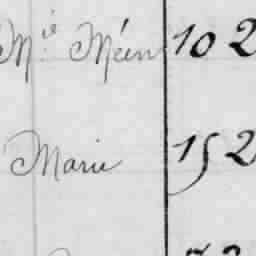 Mie Méen 10 2
Marie 15 2